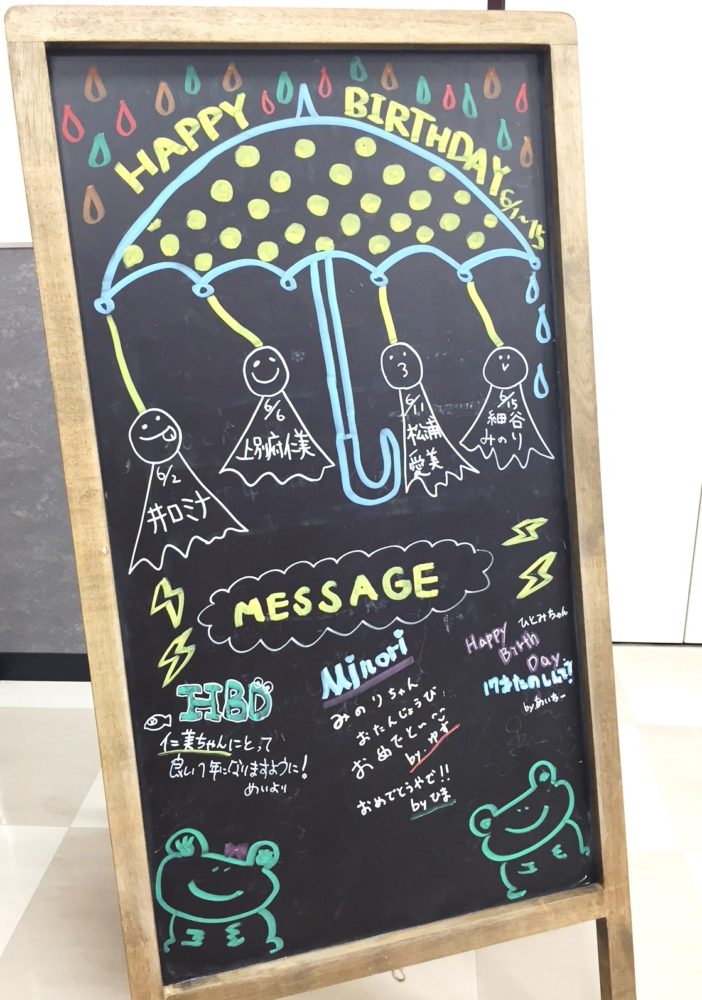 HAPPY BIRTHDAY
6/1~15
6/2
井口ミナ
6/6
上別府仁美
6/11
松浦
愛美
6/15
細谷
みのり
MESSAGE
HBD
仁美ちゃんにとって
良い1年になりますように!
めいより
Minori
みのりちゃん
おたんじょうび
おめでと〜
by.ゆず
おめでとうやで!!
by ひま
ひとみちゃん
Happy
Birth
Day
17才たのしんで!
by あいちー